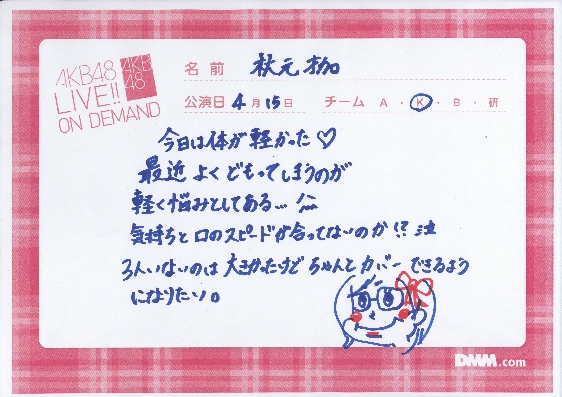 AKB48
LIVE!!
ON DEMAND
AKB
48
名前 秋元才加
公演日 4月15日 チーム A・K・B・研
今日は体が軽かった♡
最近よくどもってしまうのが
軽く悩みとしてある…
気持ちと口のスピードが合ってないのか!?泣
3人いないのは大きかったけどちゃんとカバーできるよう
になりたい。
DMM.com